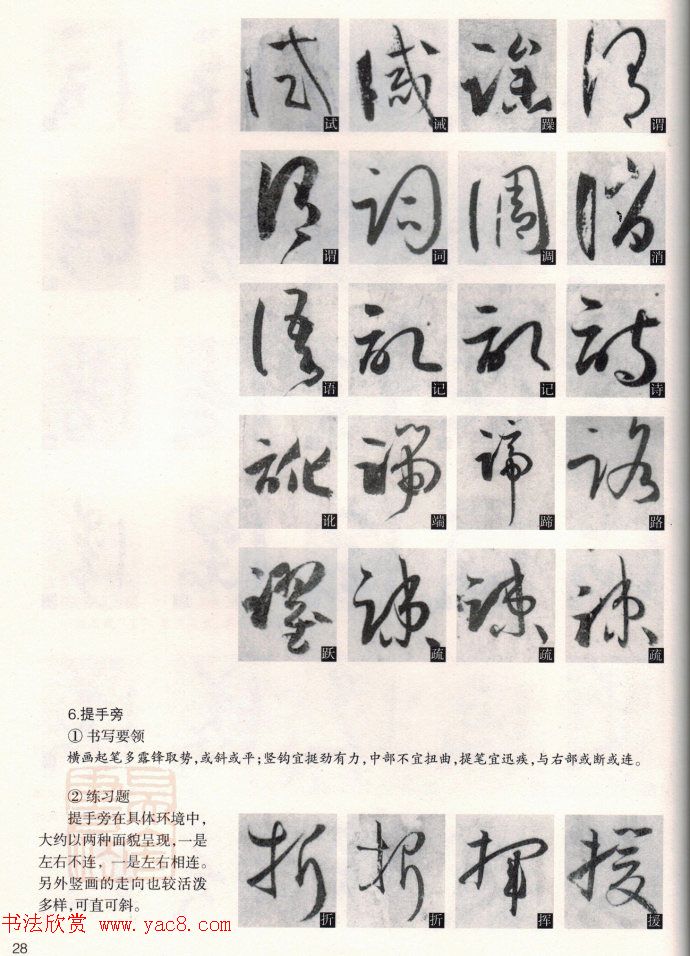 试 诫 躁 谓
谓 词 凋 消
语 记 记 诗
讹 端 蹄 路
跃 疏 疏 疏
6.提手旁
① 书写要领
横画起笔多露锋取势,或斜或平;竖钩宜挺劲有力,中部不宜扭曲,提笔宜迅疾,与右部或断或连。
② 练习题
提手旁在具体环境中,
大约以两种面貌呈现,一是
左右不连,一是左右相连。
另外竖画的走向也较活泼
多样,可直可斜。
折 折 挥 援
书法欣赏 www.yac8.com
28